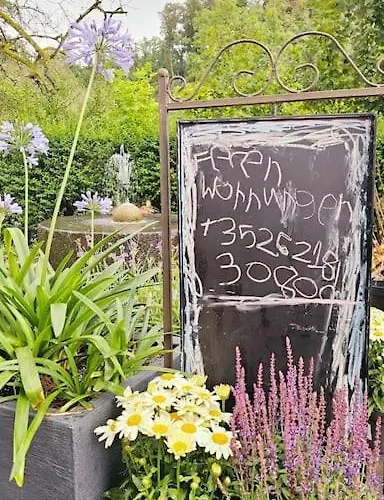 Feren
wohnungen
+3526218
30800